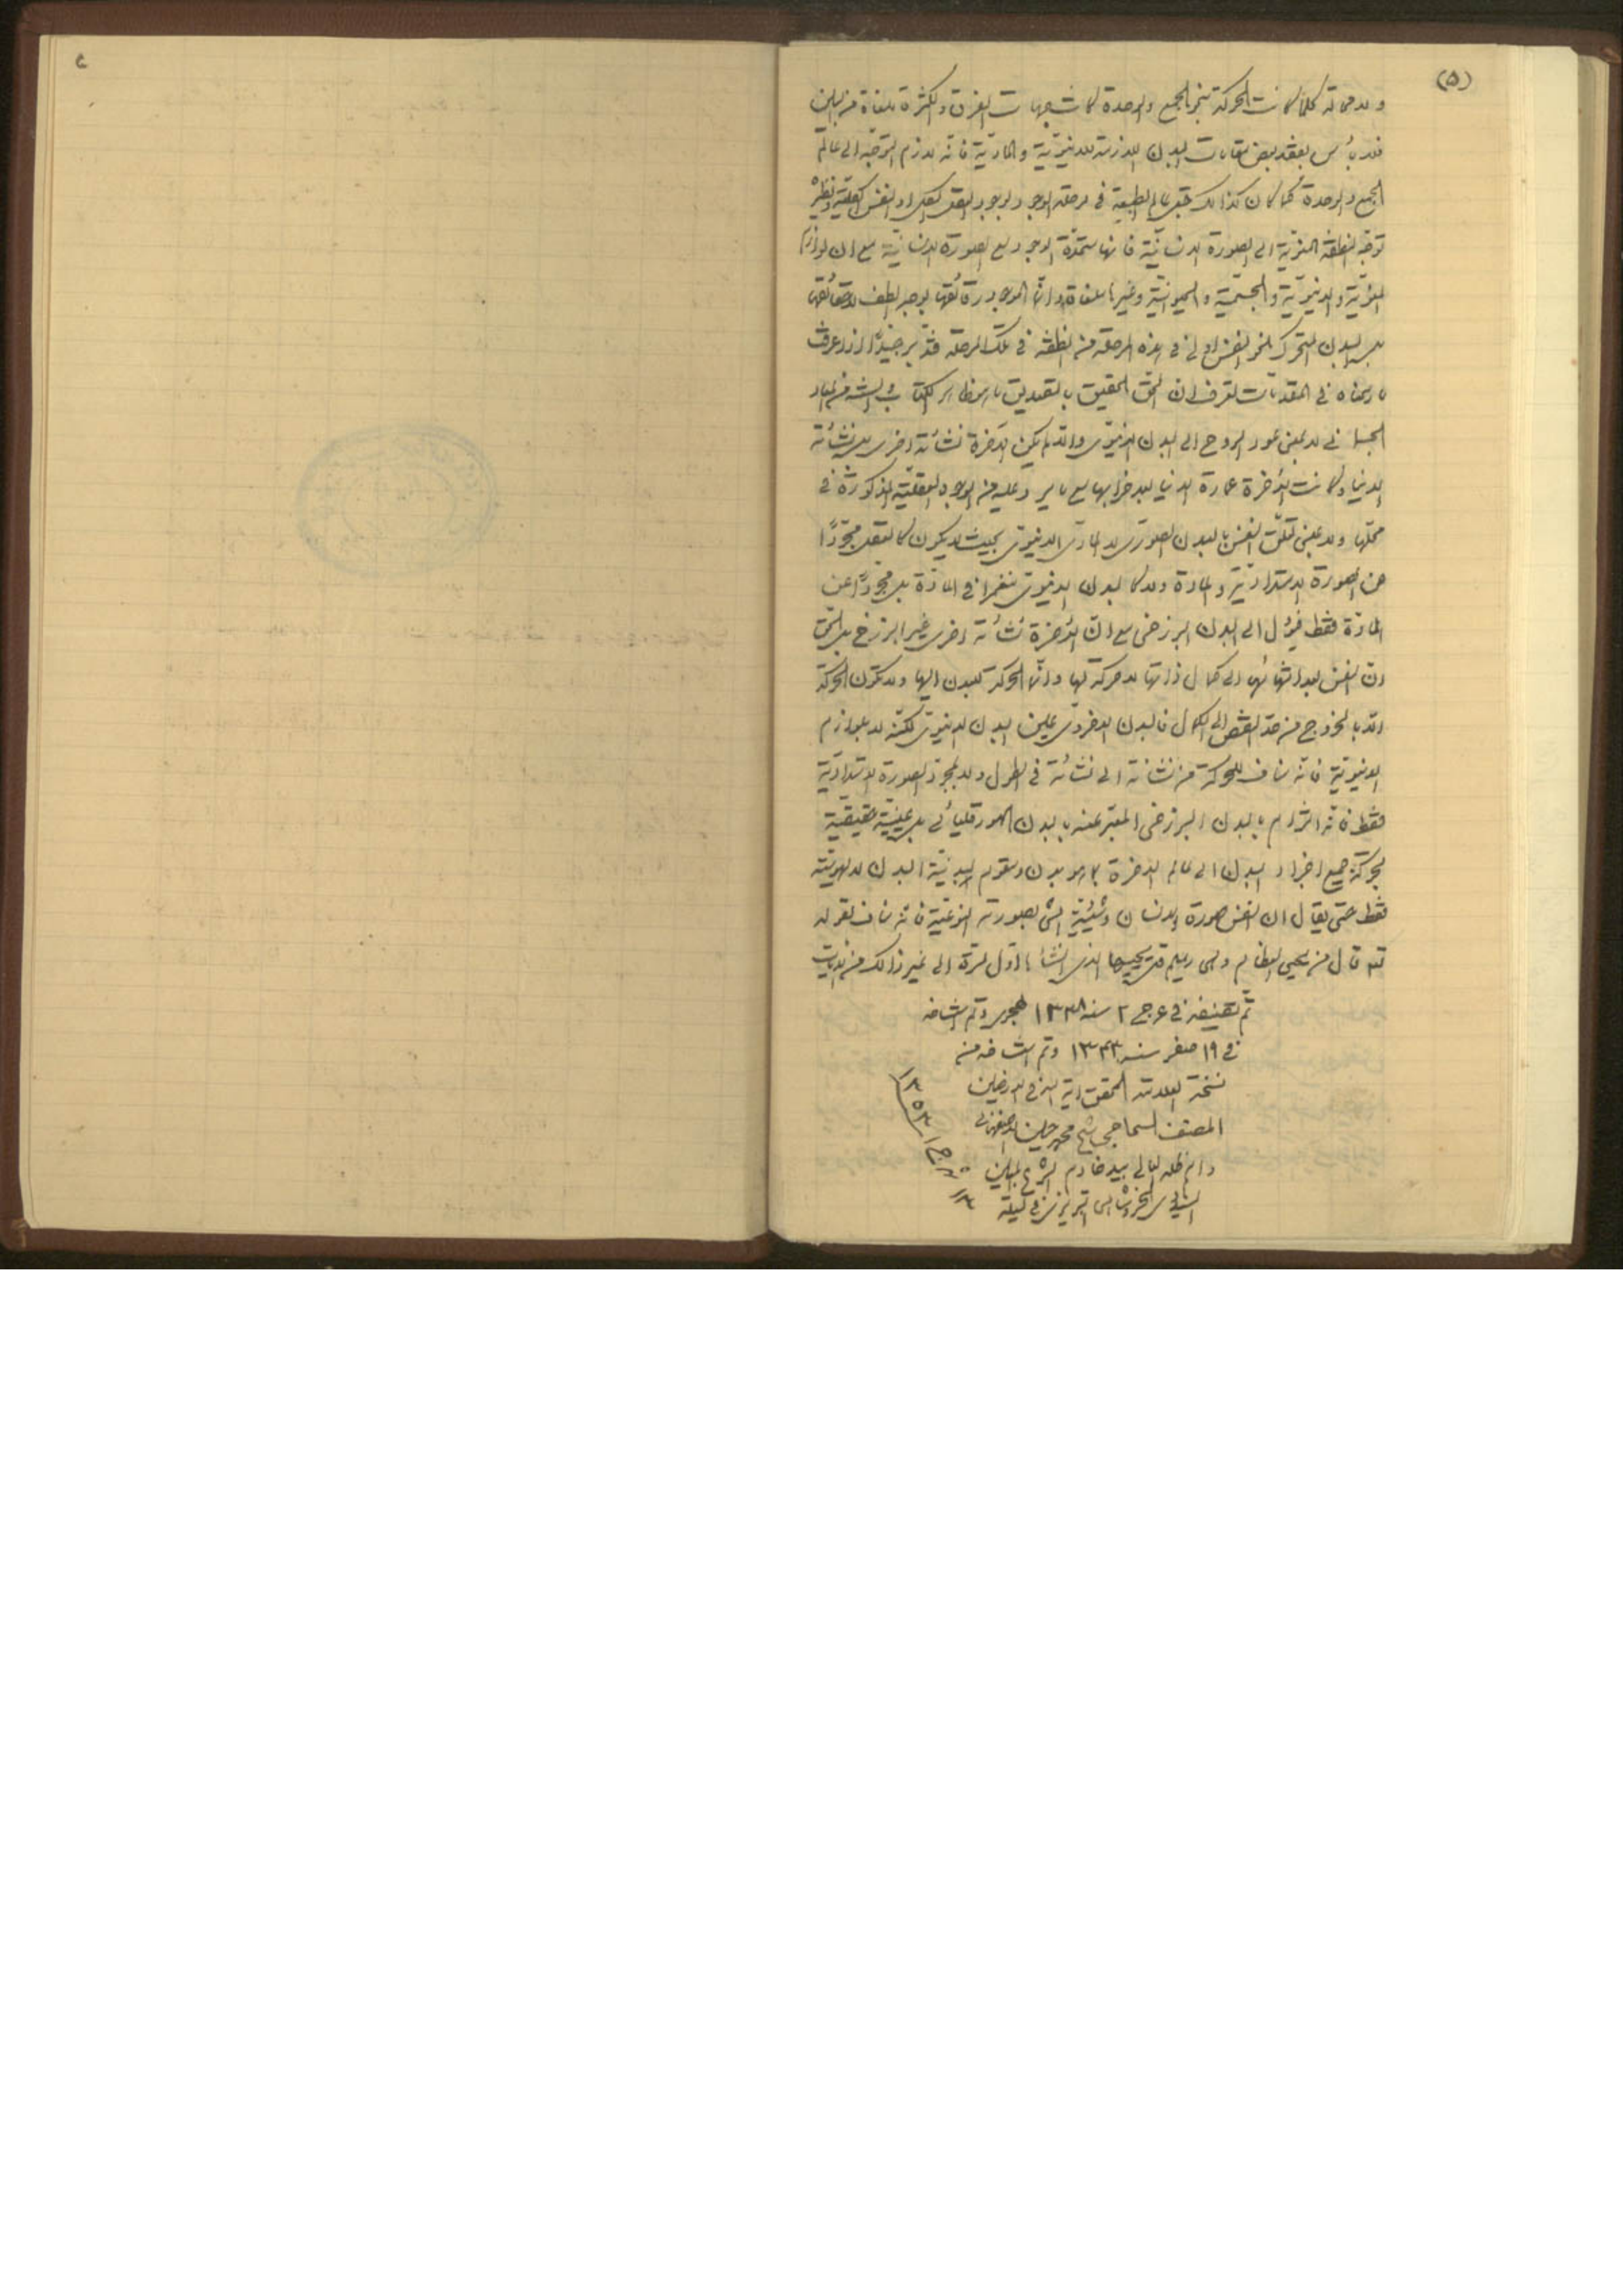 (۵)
ولا محالة كلما كانت الحركة بنحو الجمع والوحدة كانت جهات الفرق والكثرة ملغاة من البين
فلا بأس بفقد بعض مقامات البدن اللازمة للدنيوية والمادية فانه لازم التوجه الى عالم
الجمع والوحدة كما كان كذلك حتى عالم الطبيعة فى مرحلة الوجود بوجود العقل الكلى او النفس الكلية ونظيره
توجه النطفة المنوية الى الصورة الانسانية فانها متحدة الوجود مع الصورة الانسانية مع ان لوازم
المنوية والدنيوية والجسمية والحيوانية وغيرها ملغاة وانما الموجود رقائقها بوجه الطف لا حقائقها
بل البدن المتحرك بنحو النفس اولى فى هذه المرحلة من النطفة فى تلك المرحلة فتدبر جيدا اذا عرفت
ما رسمناه فى المقدمات تعرف ان الحق الحقيق بالتصديق ظاهر الكتاب والسنة من المعاد
الجسمانى لا بمعنى عود الروح الى البدن الدنيوى والا لم يكن الآخرة نشأة اخرى بل نشأة
الدنيا وكانت الآخرة عمارة الدنيا بعد خرابها مع ما يرد عليه من الوجوه العقلية المذكورة فى
محلها ولا بمعنى تعلق النفس بالبدن الصورى لا المادى الدنيوى بحيث لا يكون كالعقل مجردا
عن الصورة الامتدادية والمادة ولا كالبدن الدنيوى منغمرا فى المادة بل مجردا عن
المادة فقط فيؤل الى البدن البرزخى مع ان الآخرة نشأة اخرى غير البرزخ بل الحق
ان النفس بعد انتهائها الى كمال ذاتها لا حركة لها وانما الحركة للبدن اليها ولا تكون الحركة
الا بالخروج من حد النقص الى الكمال فالبدن الاخروى عين البدن الدنيوى لكنه لا بلوازم
الدنيوية فانه مناف للحركة من نشأة الى نشأة فى الطول ولا بمجرد الصورة الامتدادية
فقط فانه التزام بالبدن البرزخى المعبر عنه بالبدن الهورقليائى بل عينية حقيقية
بحركة جميع اجزاء البدن الى عالم الآخرة بما هو بدن ومقوم لبدنية البدن لا لهويته
فقط حتى يقال ان النفس صورة الانسان وشيئية الشئ بصورته النوعية فانه مناف لقوله
تعه قال من يحيى العظام وهى رميم قل يحييها الذى انشأها اول مرة الى غير ذلك من الآيات
تم تصنيفه فى ۶ ج ٢ سنه ١٣٣٨ هجرى وتم
فى ١٩ صفر سنه ١٣٤٣ وتم من
نسخة العلامة المحقق آية الله فى الارضين
المصنف السماحجى شيخ محمد حسين الاصفهانى
دام ظله العالى بيد خادم الشرع المبين
التبريزى فى ليلة